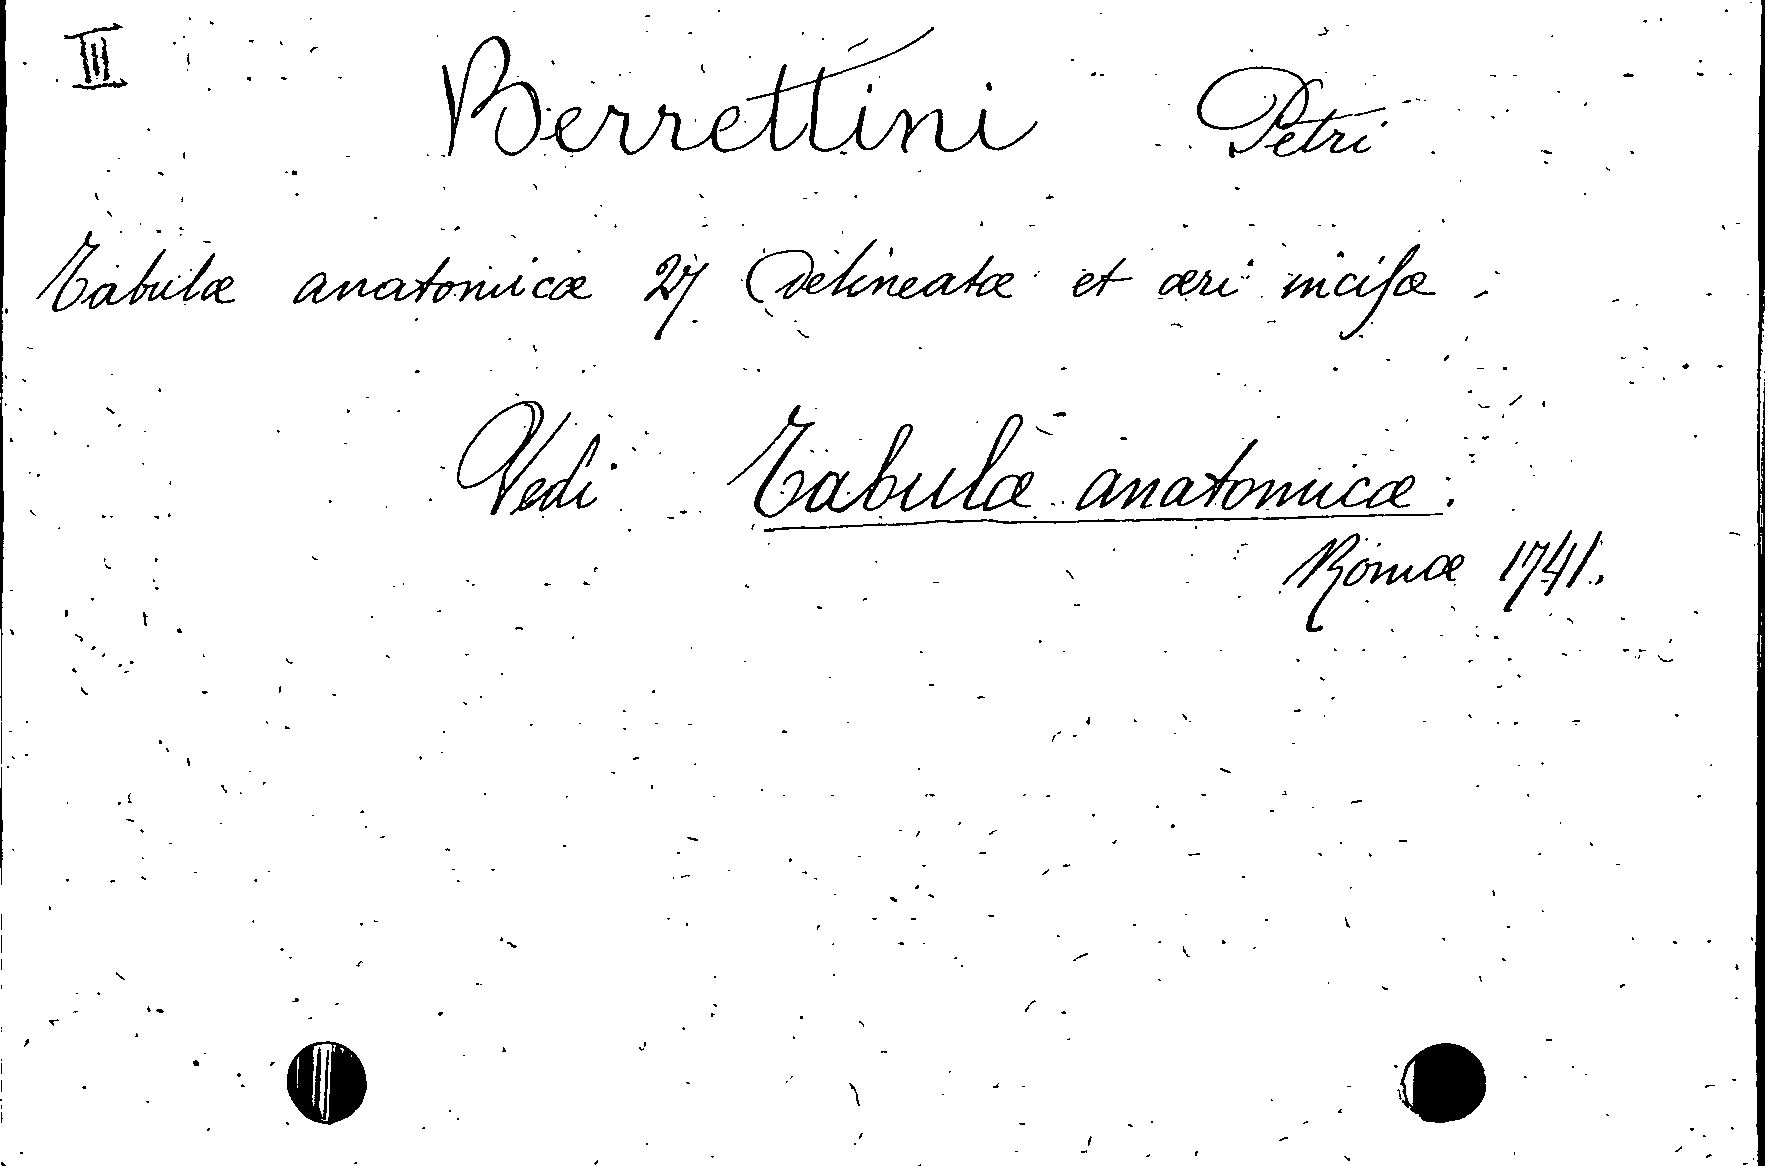 III
Berrettini Petri
Tabulæ anatomicæ 27 delineatæ et æri inciſæ :
Vedi Tabulæ anatomicæ.
Romæ 1741.